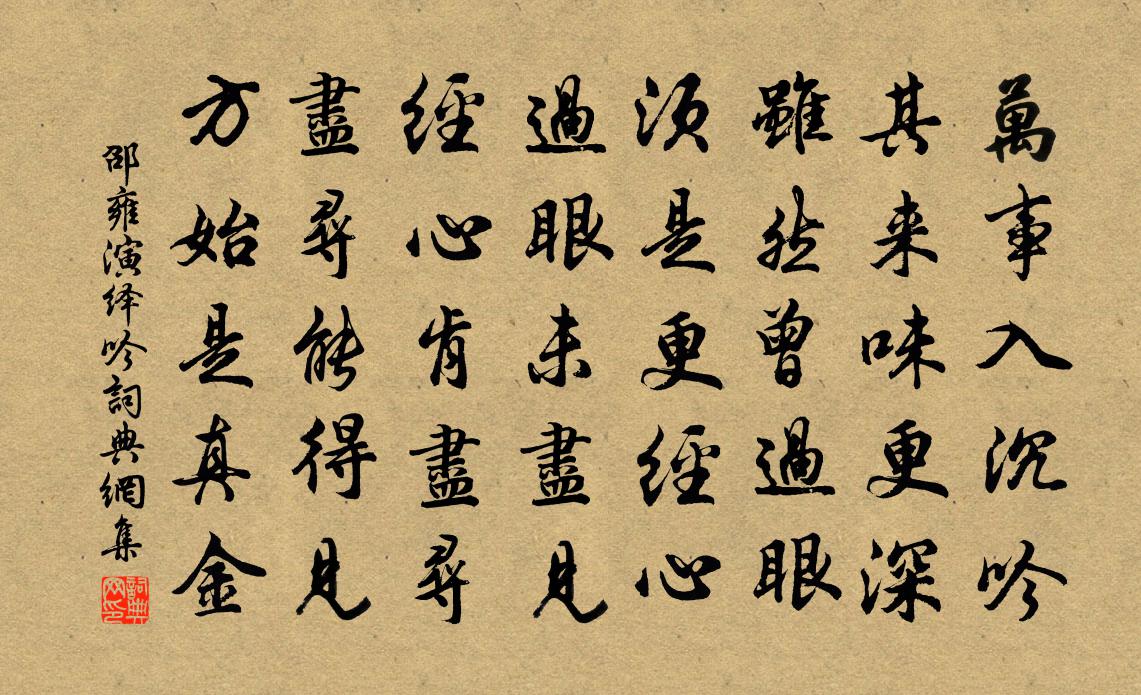 萬事入沉吟
其来味更深
雖然曾過眼
須是更經心
過眼未盡見
經心肯盡尋
盡尋能得見
方始是真金
邵雍演绎吟詞典網集
詞典网印